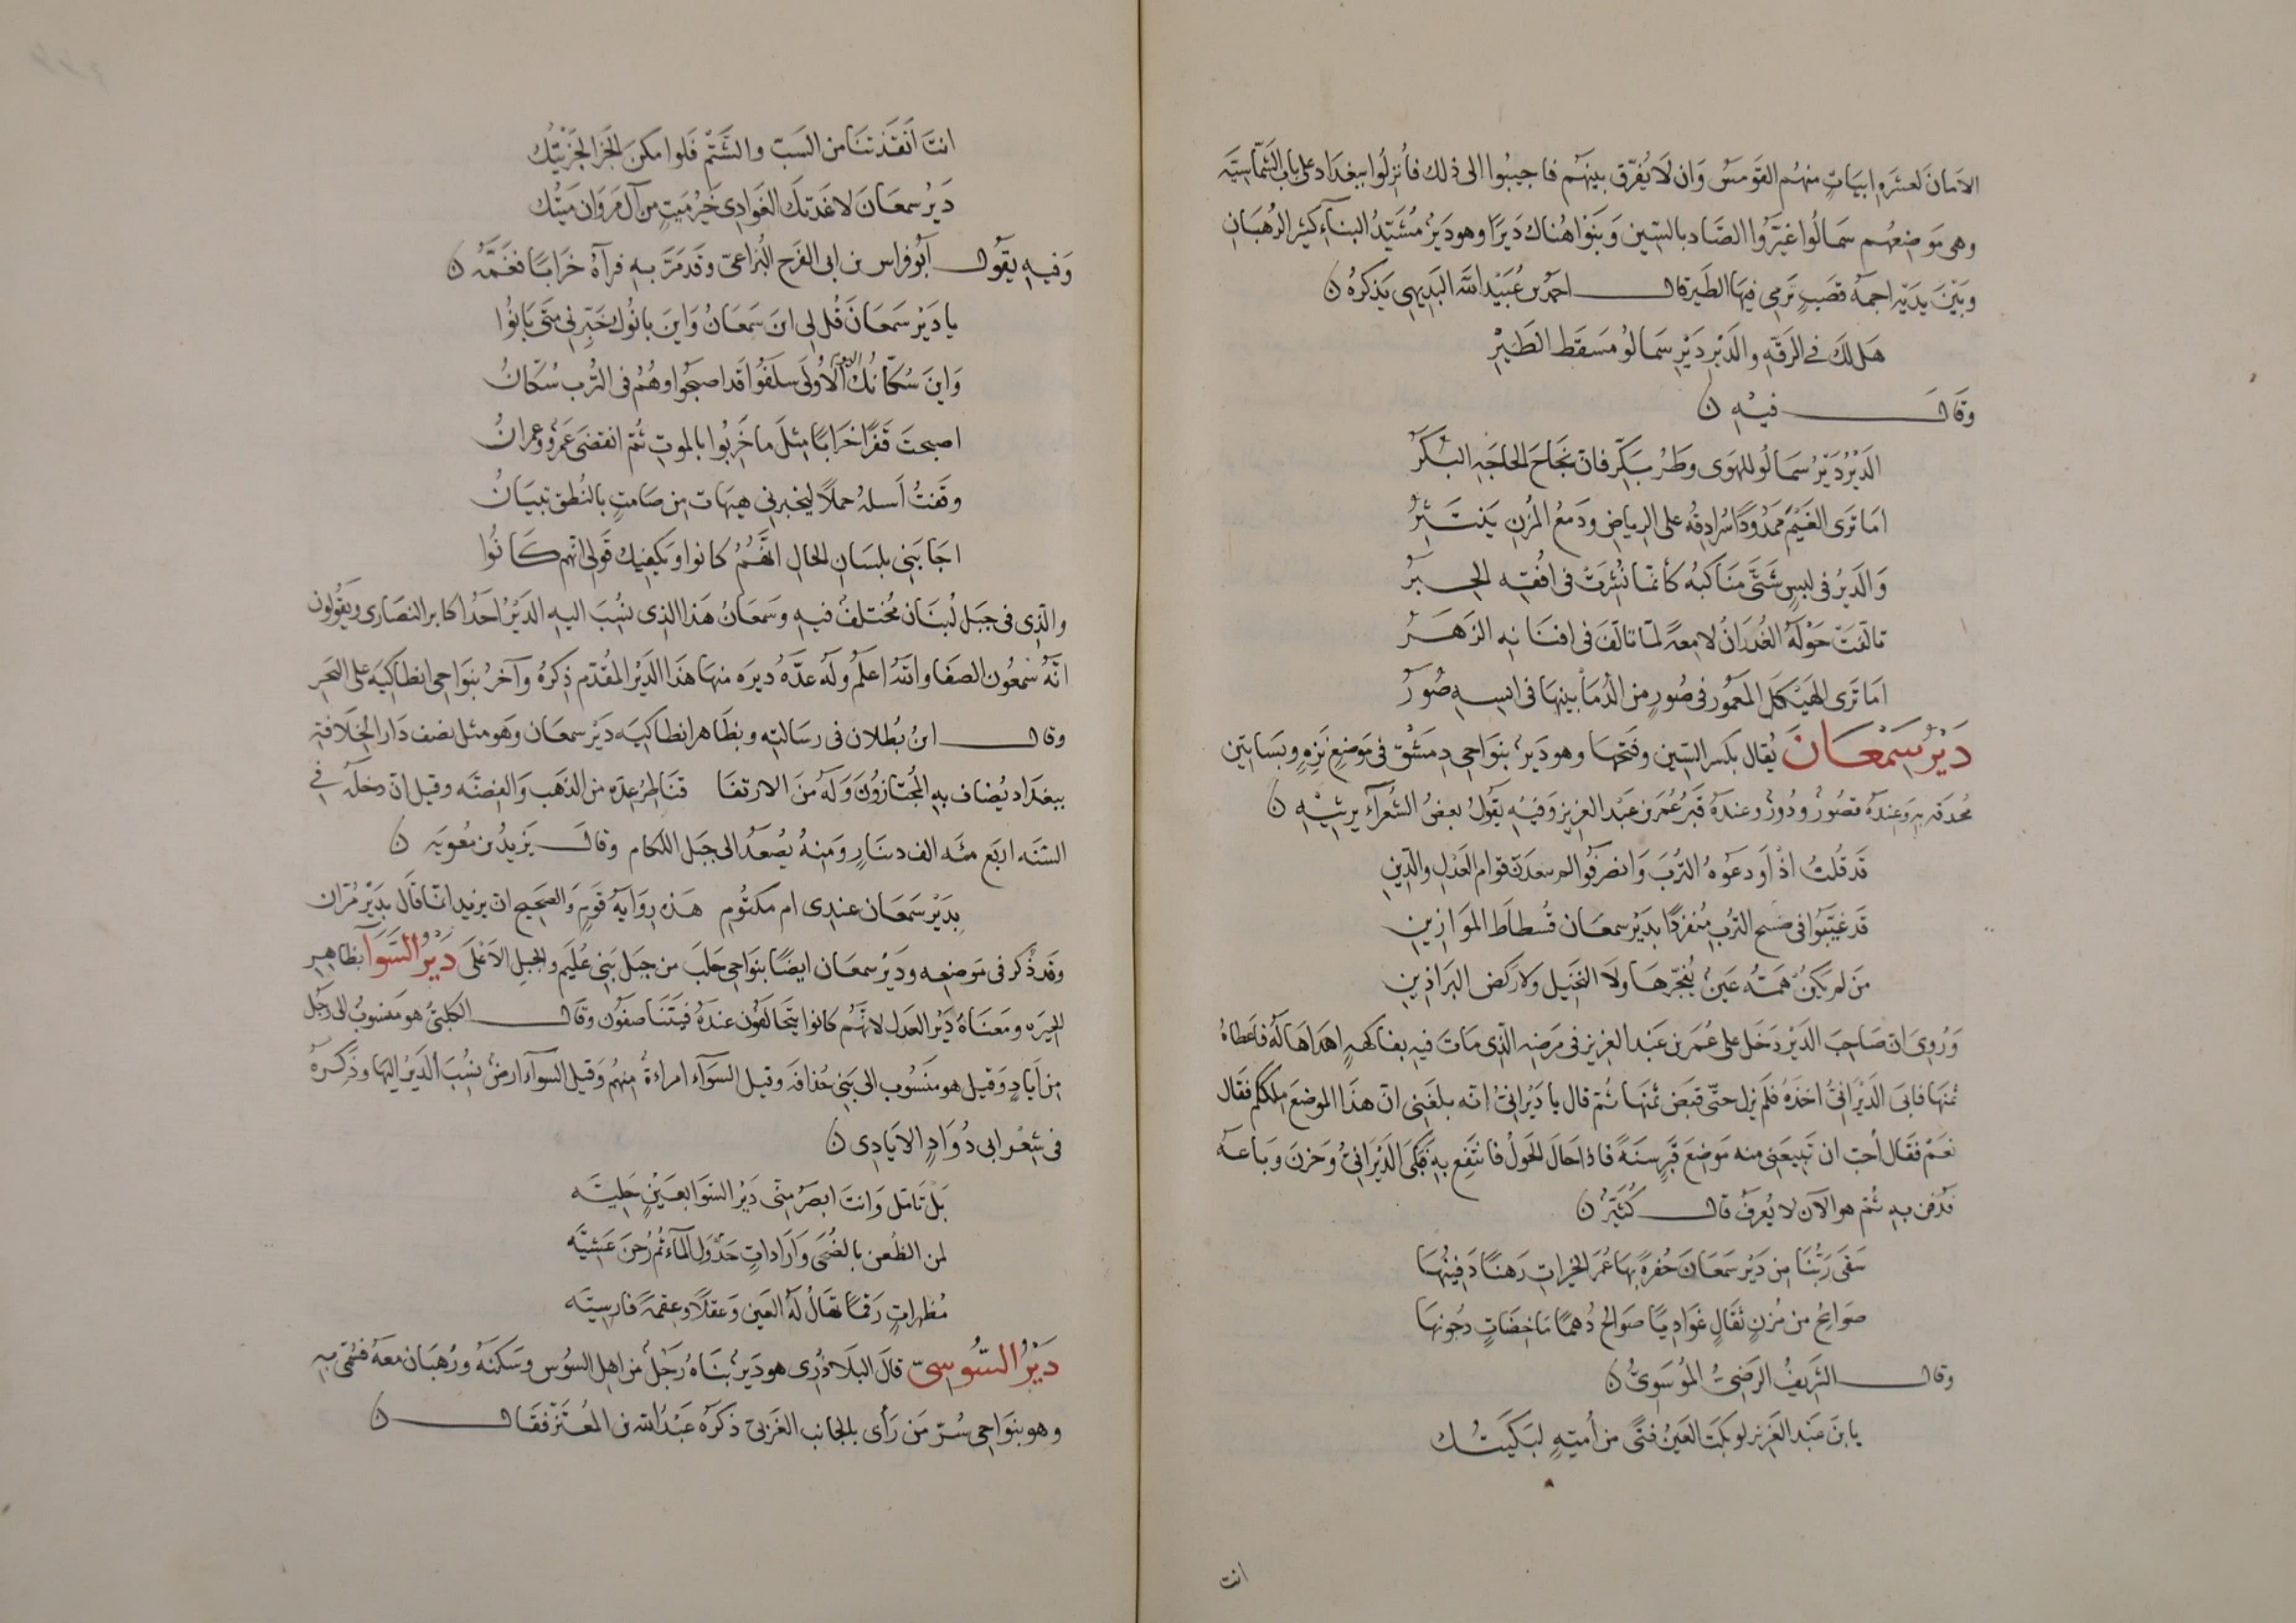 الامان لعشره ابيات منهم القومس وان لا يفرّق بينهم فاجيبوا الى ذلك فانزلوا ببغداد على باب الشمّاسيّه
وهى موضعهم سمالوا غيّروا الصّاد بالسّين وبنوا هناك ديرًا وهو ديرٌ مشيّد البنآء كثير الرهبان
وبين يديه اجمه قصب ترمى فيها الطير قال احمد بن عبيد الله البديهى يذكره ن
هل لك فى الرقّه والدير دير سمالو مسقط الطير
وقال فيه ن
الدير دير سمالو للهوى وطر بكّر فانّ نجاح الحاجه البكر
اما ترى الغيم ممدودًا سرادقه على الرياض ودمع المزن ينتثر
والدير فى لبس شتّى مناكبه كأنّما نشرت فى افقه الحبر
تالّفت حوله الغدران لامعةً لمّا تالّف فى افنانه الزهر
اما ترى الهيكل المعمور فى صور من الدما بينها فى انسه صور
دير سمعان يقال بكسر السّين وفتحها وهو ديرٌ بنواحى دمشق فى موضع نزه وبساتين
محدقه به وعنده قصور ودور وعنده قبر عمر بن عبد العزيز وفيه يقول بعض الشعرآء يرثيه ن
قد قلت اذ اودعوه الترب وانصرفوا لا يبعدن قوام العدل والدين
قد غيّبوا فى ضريح الترب منفردًا بدير سمعان قسطاط الموازين
من لم يكن همّه عينٌ يفجّرها ولا النخيل ولا ركض البراذين
وروى ان صاحب الدير دخل على عمر بن عبد العزيز فى مرضه الّذى مات فيه بفاكهه اهداها له فاعطاه
ثمنها فابى الديرانىّ اخذه فلم يزل حتّى قبض ثمنها ثمّ قال يا ديرانىّ انّه بلغنى ان هذا الموضع ملككم فقال
نعم فقال احبّ ان تبيعنى منه موضع قبر سنةً فاذا حال الحول فانتفع به فبكى الديرانىّ وحزن وباعه
فدفن به ثمّ هو الآن لا يعرف قال كثيّر ن
سقى ربّنا من دير سمعان حفرةً بها عمر الخيرات رهنًا دفينها
صوابح من مزن ثقال غواديًا صوالح دهمًا ماخضات دجونها
وقال الشريف الرضىّ الموسوىّ ن
يا بن عبد العزيز لو بكت العين فتًى من أميّه لبكيتك
انت
انت انقذتنا من السب والشتم فلو امكن الجزا لجزيتك
دير سمعان لا غدتك الغوادى خير ميت من آل مروان ميتك
وفيه يقول أبو فراس بن ابى الفرح البزاعىّ وقد مرّ به فرآه خرابًا فغمّه ن
يا دير سمعان قل لى اين سمعان واين بانوك خبّرنى متى بانوا
واين سكّانك الاولى سلفوا قد اصبحوا وهم فى الترب سكّان
اصبحت قفرًا خرابًا مثل ما خربوا بالموت ثمّ انقضى عمرو وعمران
وقفت أسله جهلًا ليخبرنى هيهات من صامت بالنطق تبيان
اجابنى بلسان الحال انّهم كانوا ويكفيك قولى انّهم كانوا
والّذى فى جبل لبنان مختلف فيه وسمعان هذا الذى نسب اليه الدير احد اكابر النصارى ويقولون
انّه شمعون الصفا والله اعلم وله عدّه ديره منها هذا الدير المقدّم ذكره وآخر بنواحى انطاكيه على البحر
وقال ابن بطلان فى رسالته وبظاهر انطاكيه دير سمعان وهو مثل نصف دار الخلافة
ببغداد يضاف به المجتازون وله من الارتفا قناطر عدّه من الذهب والفضّه وقيل انّ دخله فى
السّنه اربع مئه الف دينار ومنه يصعد الى جبل اللكام وقال يزيد بن معويه ن
بدير سمعان عندى ام مكتوم هذه روايه قوم والصحيح ان يزيد انّما قال بدير مرّان
وقد ذكر فى موضعه ودير سمعان ايضًا بنواحى حلب من جبل بنى عليم والجبل الاعلى دير السّوا بظاهر
الحيره ومعناه دير العدل لانّهم كانوا يتحالفون عنده فيتناصفون وقال الكلبىّ هو منسوب الى رجل
من اياد وقيل هو منسوب الى بنى حذافه وقيل السوآء امراءة منهم وقيل السوآء ارض نسب الدير اليها وذكره
فى شعر ابى دواد الايادى ن
بل تامّل وانت ابصر منّى دير السوا بعين جليّه
لمن الظعن بالضحى وارادات جدول المآء ثمّ رحن عشيّه
مظهرات رقمًا تهال له العين وعقلًا وعقمةً فارسيّه
دير السّوسىّ قال البلاذرى هو ديرٌ بناه رجل من اهل السوس وسكنه ورهبان معه فسمّى به
وهو بنواحى سرّ من رأى بالجانب الغربىّ ذكره عبد الله بن المعتز فقال ن